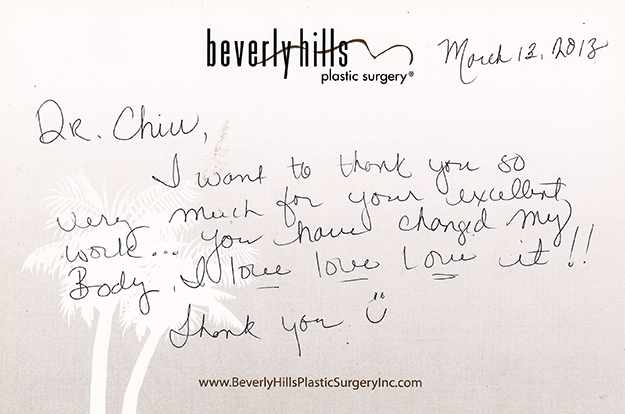 beverly hills
plastic surgery®
March 13, 2013
Dr. Chiu,
I want to thank you so
very much for your excellent
work... you have changed my
Body. I love love love it!!
Thank you
www.BeverlyHillsPlasticSurgeryInc.com